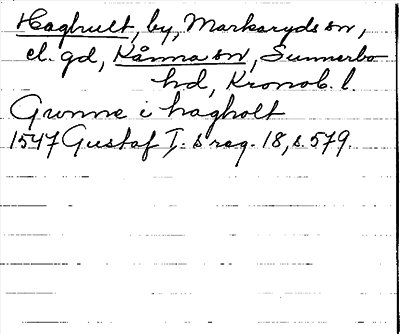 Haghult, by, Markaryds sn,
el. gd, Kånna sn, Sunnerbo
hd, Kronob. l.
Gunne i hagholt
1547 Gustaf I:s reg. 18, s. 579.